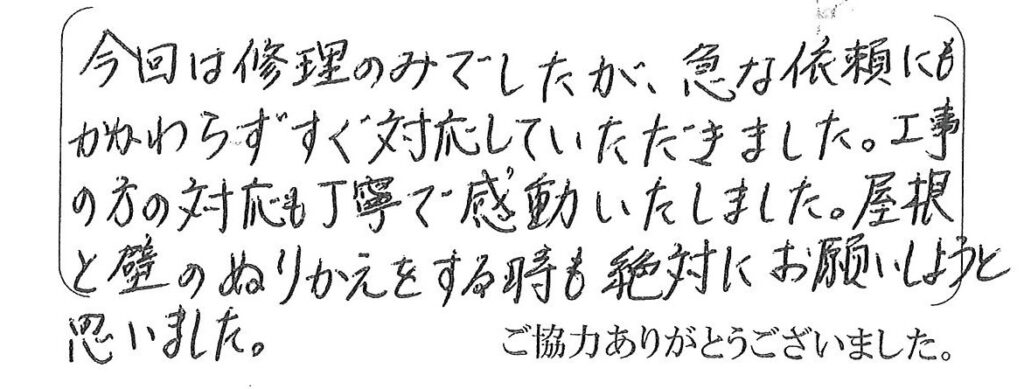 今回は修理のみでしたが、急な依頼にも
かかわらずすぐ対応していただきました。工事
の方の対応も丁寧で感動いたしました。屋根
と壁のぬりかえをする時も絶対にお願いしようと
思いました。
ご協力ありがとうございました。